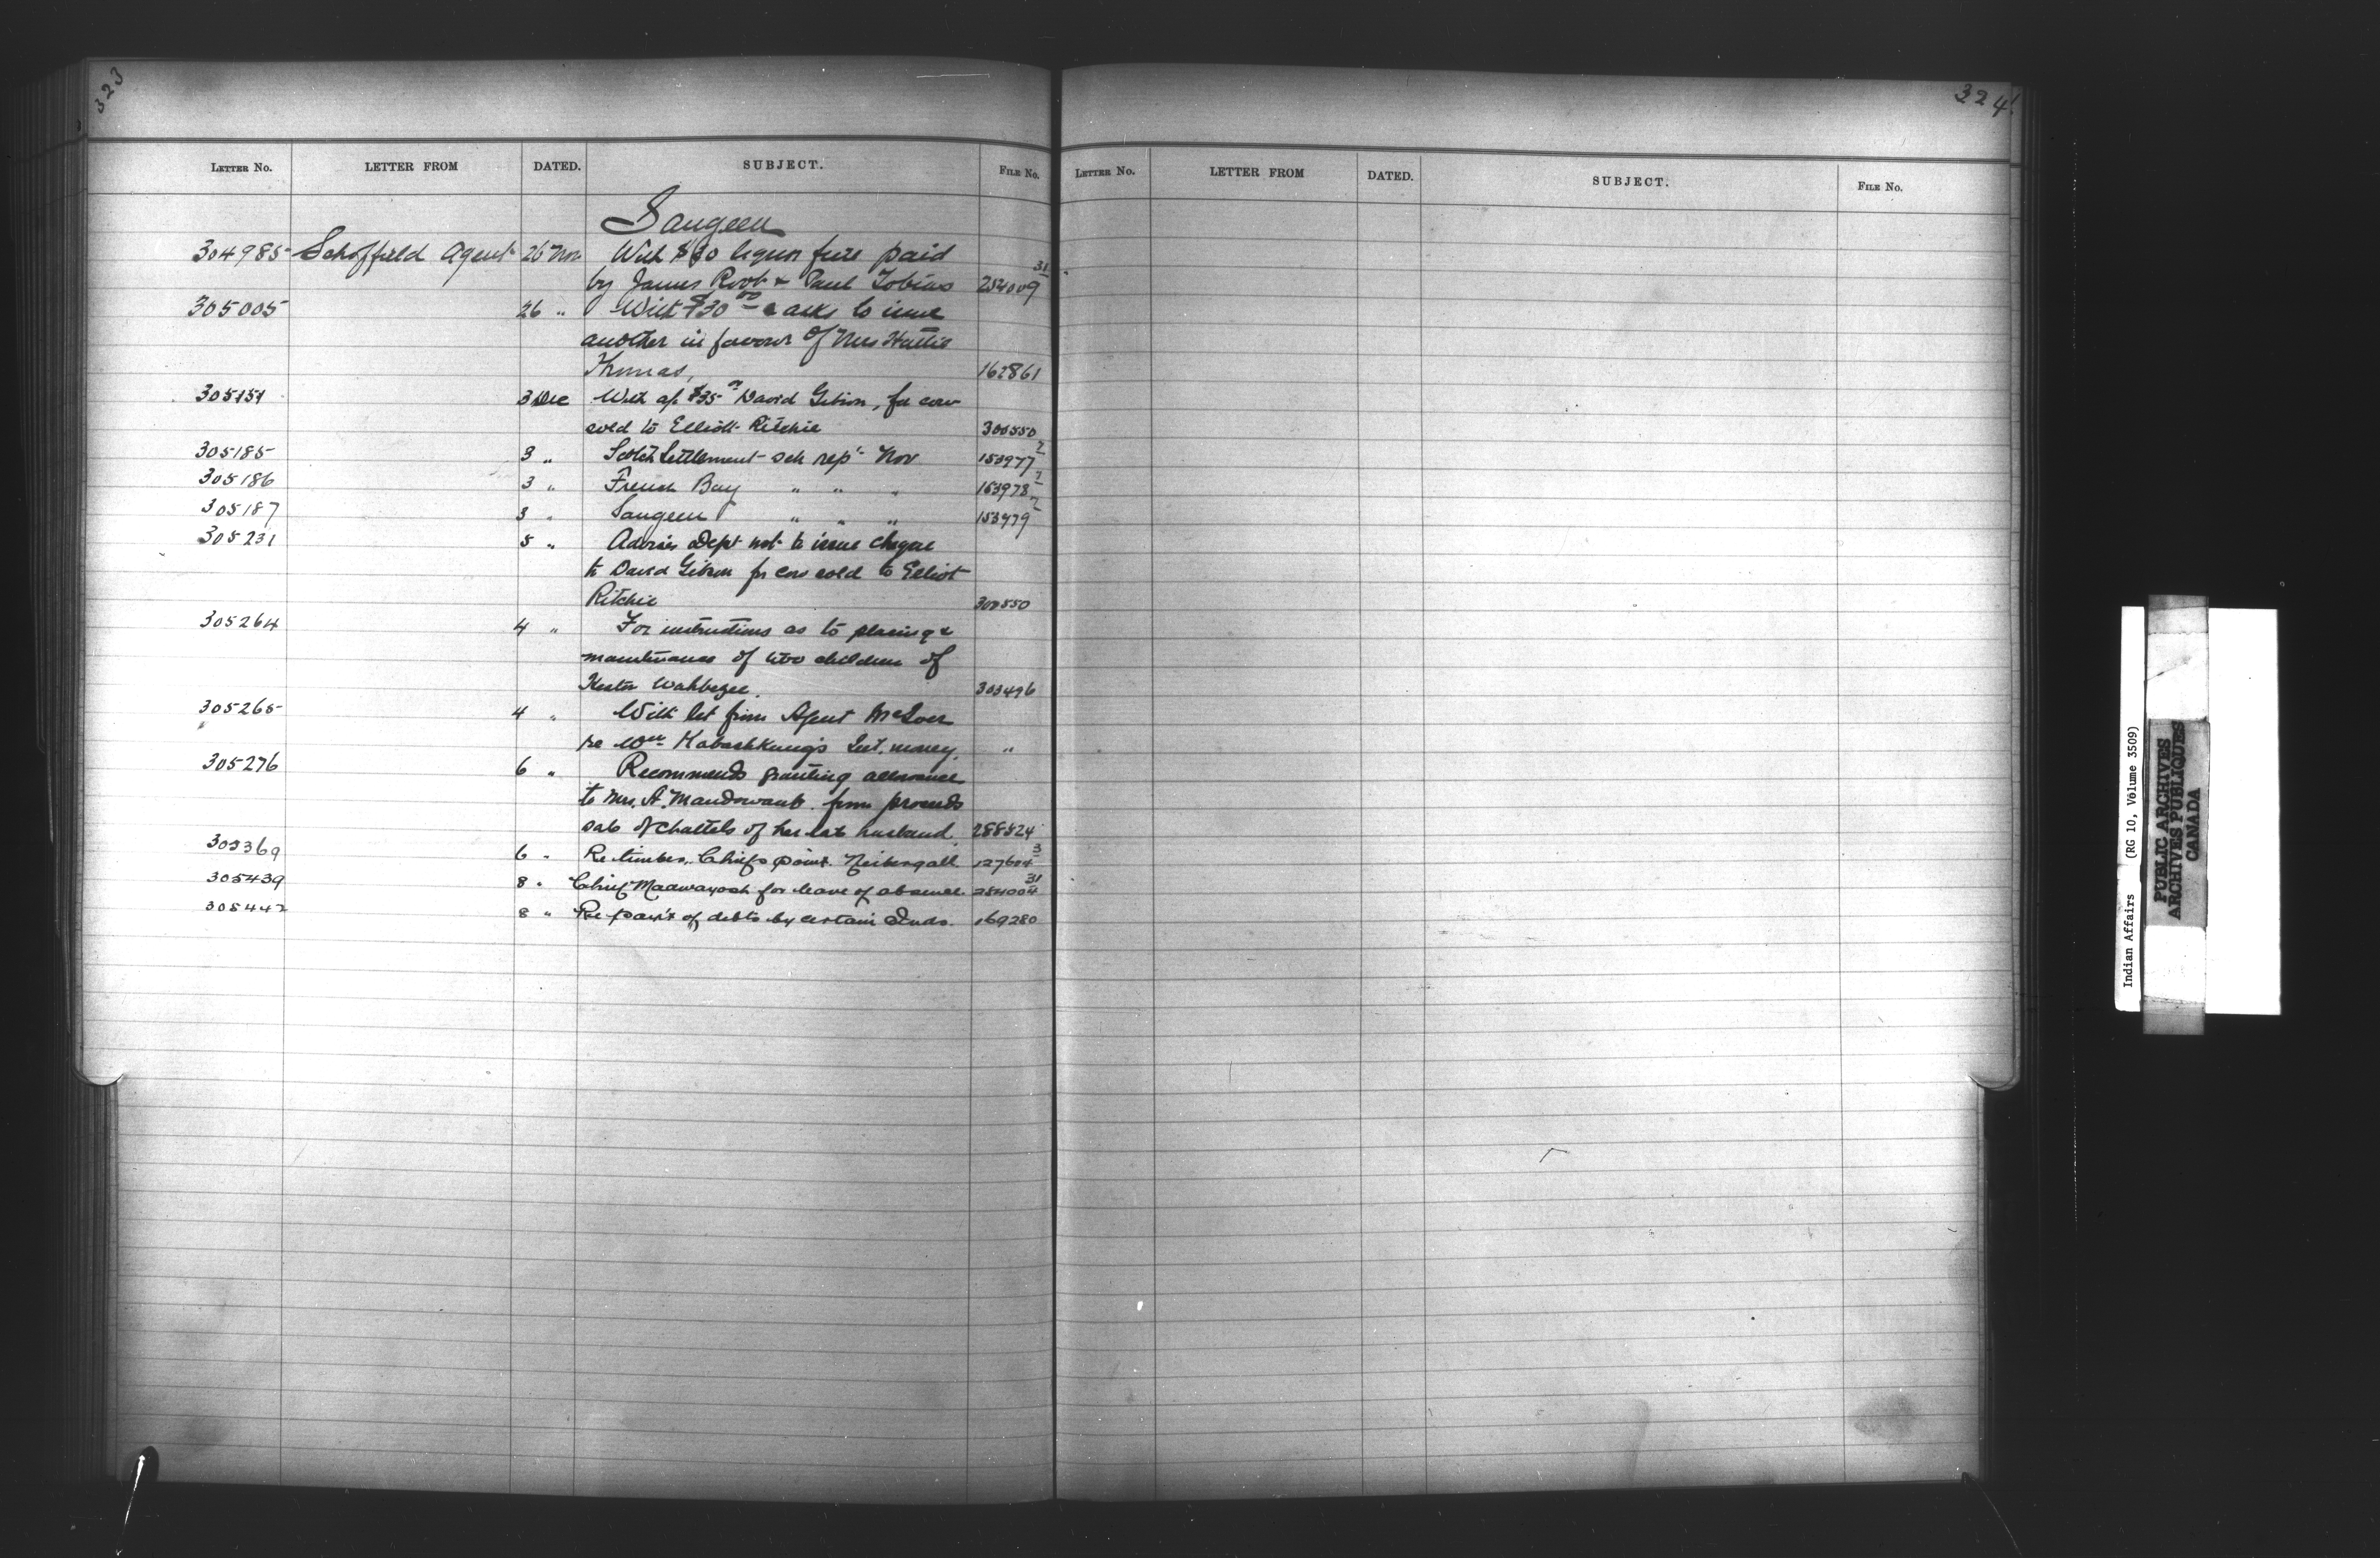 323
LETTER NO. LETTER FROM DATED. SUBJECT. FILE NO.
Saugeen
304985 Schoffield Agent 26 Nov With $10 liquor fine paid
by James Root & Paul Tobias 254009 31
305005 26 " With $30 00 & asks to issue
another in favour of Mrs Hattie
Thomas, 162861
305151 3 Dec With a/c $35 00 David Gibson, for cow
sold to Elliott Ritchie 300550
305185 3 " Scotch Settlement sch rept Nov 153977 2
305186 3 " French Bay " " " 153978 2
305187 3 " Saugeen " " " 153979 2
305231 5 " Advises Dept not to issue cheque
to David Gibson for cow sold to Elliot
Ritchie 300550
305264 4 " For instructions as to placing &
maintenance of two children of
Wahbezee. 303496
305265 4 " With let from Agent McIver
re Wm Kabashkung's Int. money. "
305276 6 " Recommends granting allowance
to Mrs. A. Mandowaub. from proceeds
sale of chattels of her late husband. 288524
305369 6 " Re timber, Chiefs point. Neibergall. 127604 3
305439 8 " Chief Madwayosh for leave of absence. 254004 31
305442 8 " Re paym't of debts by certain Inds. 169280
324
LETTER NO. LETTER FROM DATED. SUBJECT. FILE NO.
Indian Affairs (RG 10, Volume 3509)
PUBLIC ARCHIVES
ARCHIVES PUBLIQUES
CANADA